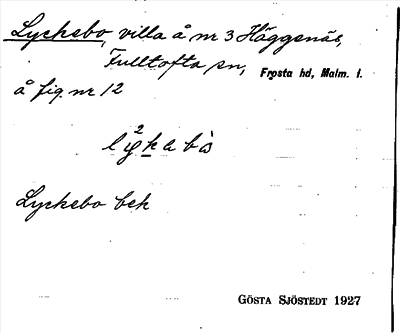 Lyckebo, villa å nr 3 Häggenäs,
Fulltofta sn, Frosta hd, Malm. l.
å fig. nr 12
Lyckebo bek
GÖSTA SJÖSTEDT 1927